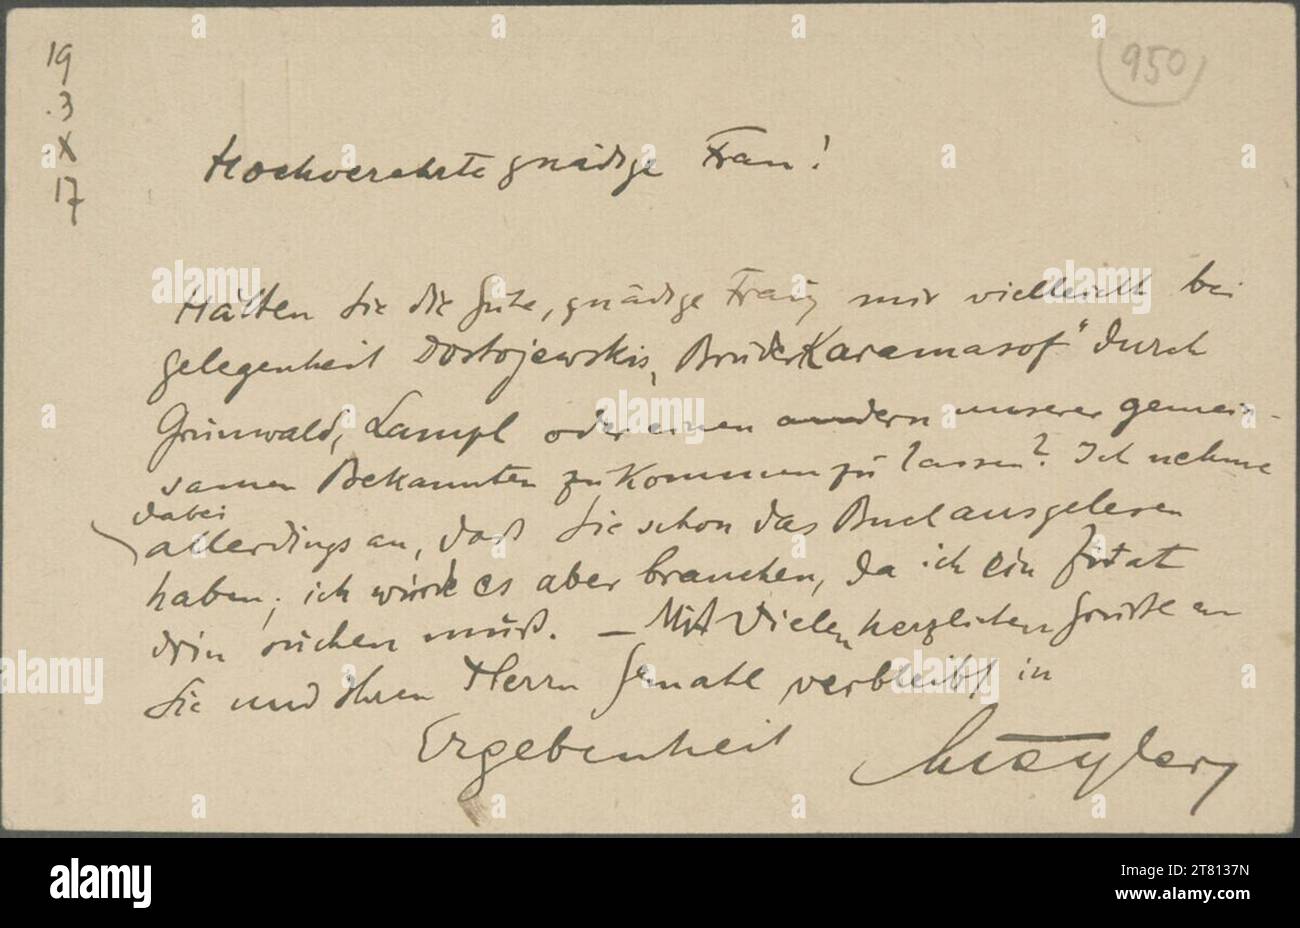 19
.3
X
17
950
Hochverehrte gnädige Frau!
Hätten Sie die Güte, gnädige Frau, mir vielleicht bei
gelegenheit Dostojewskis „Brüder Karamasof" durch
Grünwald, Lampl oder einen andern unserer gemein-
samen Bekannten zukommen zu lassen? Ich nehme
dabei
allerdings an, daß Sie schon das Buch ausgelesen
haben; ich würde es aber brauchen, da ich ein Zitat
drin suchen muß. – Mit vielen herzlichen Grüße an
Sie und Ihren Herrn Gemahl verbleibt in
Ergebenheit
alamy
Image ID: 2T8137N
www.alamy.com